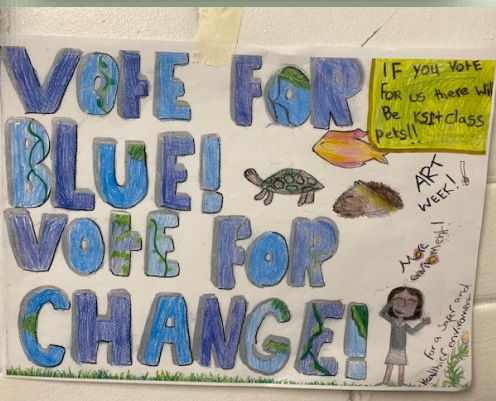 VOTE FOR
BLUE!
VOTE FOR
CHANGE!
IF YOU VOTE
FOR US there Will
Be KS1+class
pets!!
ART
WEEK!
More
environment!
For a Safer and
Healthier environment